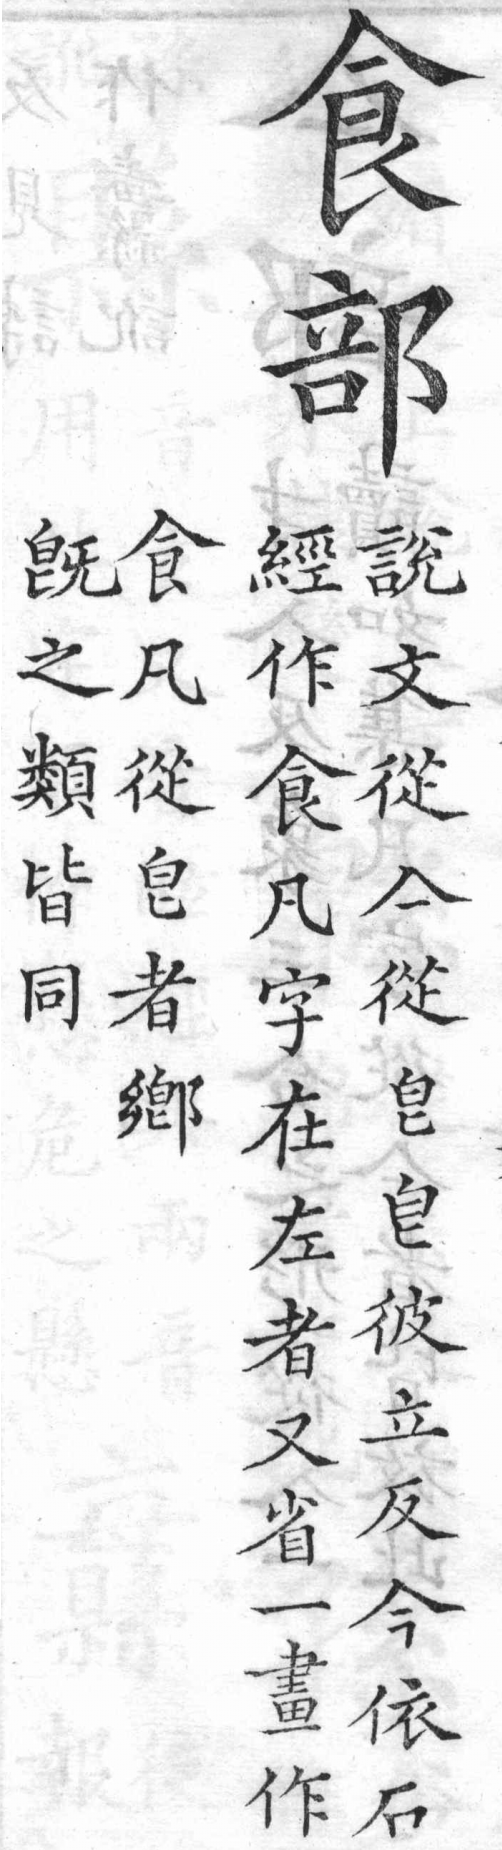 食部
說文從亼從皀皀彼立反今依石
經作食凡字在左者又省一畫作
飠凡從皀者鄉
既之類皆同